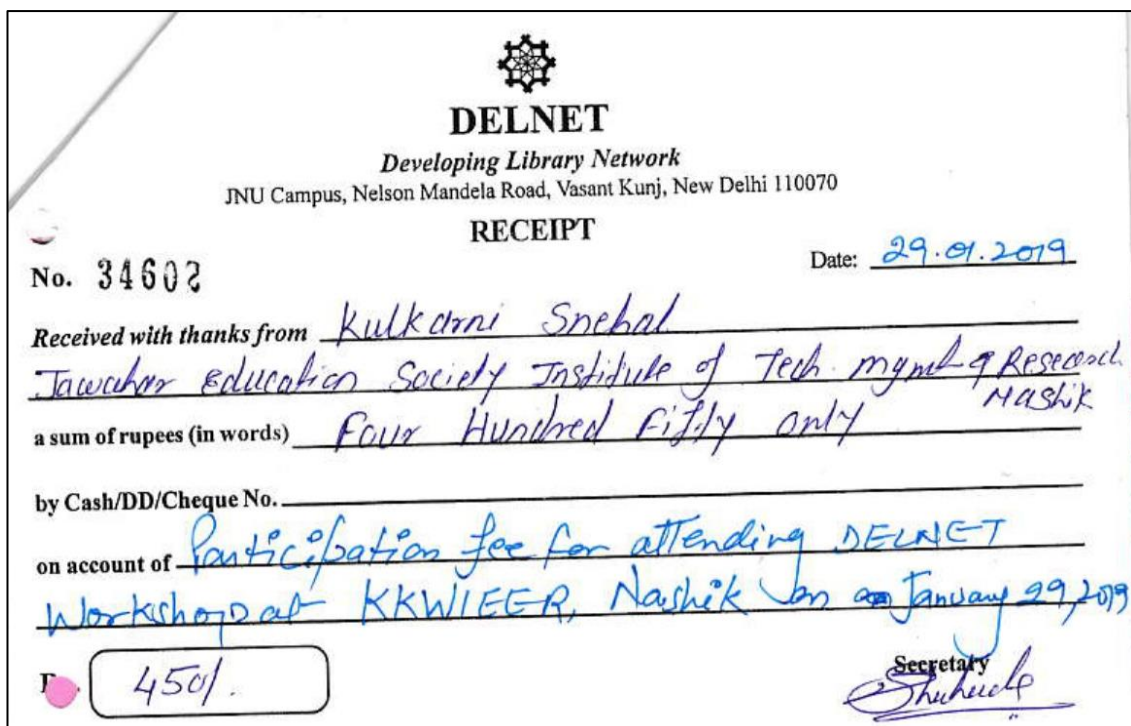 DELNET
Developing Library Network
JNU Campus, Nelson Mandela Road, Vasant Kunj, New Delhi 110070
RECEIPT
Date: 29.01.2019
No. 34602
Received with thanks from Kulkarni Snehal
Jawahar Education Society Institute of Tech. mgmt & Research
Nashik
a sum of rupees (in words) Four Hundred Fifty only
by Cash/DD/Cheque No.
on account of Participation fee for attending DELNET
Workshop at KKWIEER, Nashik on January 29, 2019
450/.
Secretary